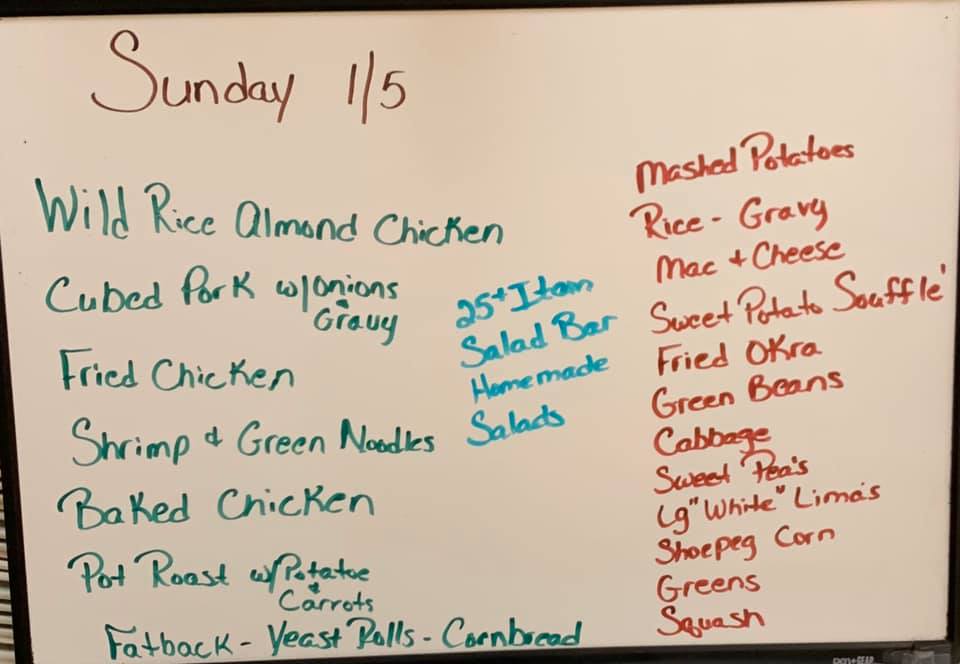 Sunday 1/5
Wild Rice Almond Chicken
Cubed Pork w/onions
+ Gravy
Fried Chicken
Shrimp + Green Noodles
Baked Chicken
Pot Roast w/Potatoe
+ Carrots
Fatback - Yeast Rolls - Cornbread
25+ Item
Salad Bar
Homemade
Salads
Mashed Potatoes
Rice - Gravy
Mac + Cheese
Sweet Potato Souffle'
Fried Okra
Green Beans
Cabbage
Sweet Pea's
Lg "White" Lima's
Shoepeg Corn
Greens
Squash